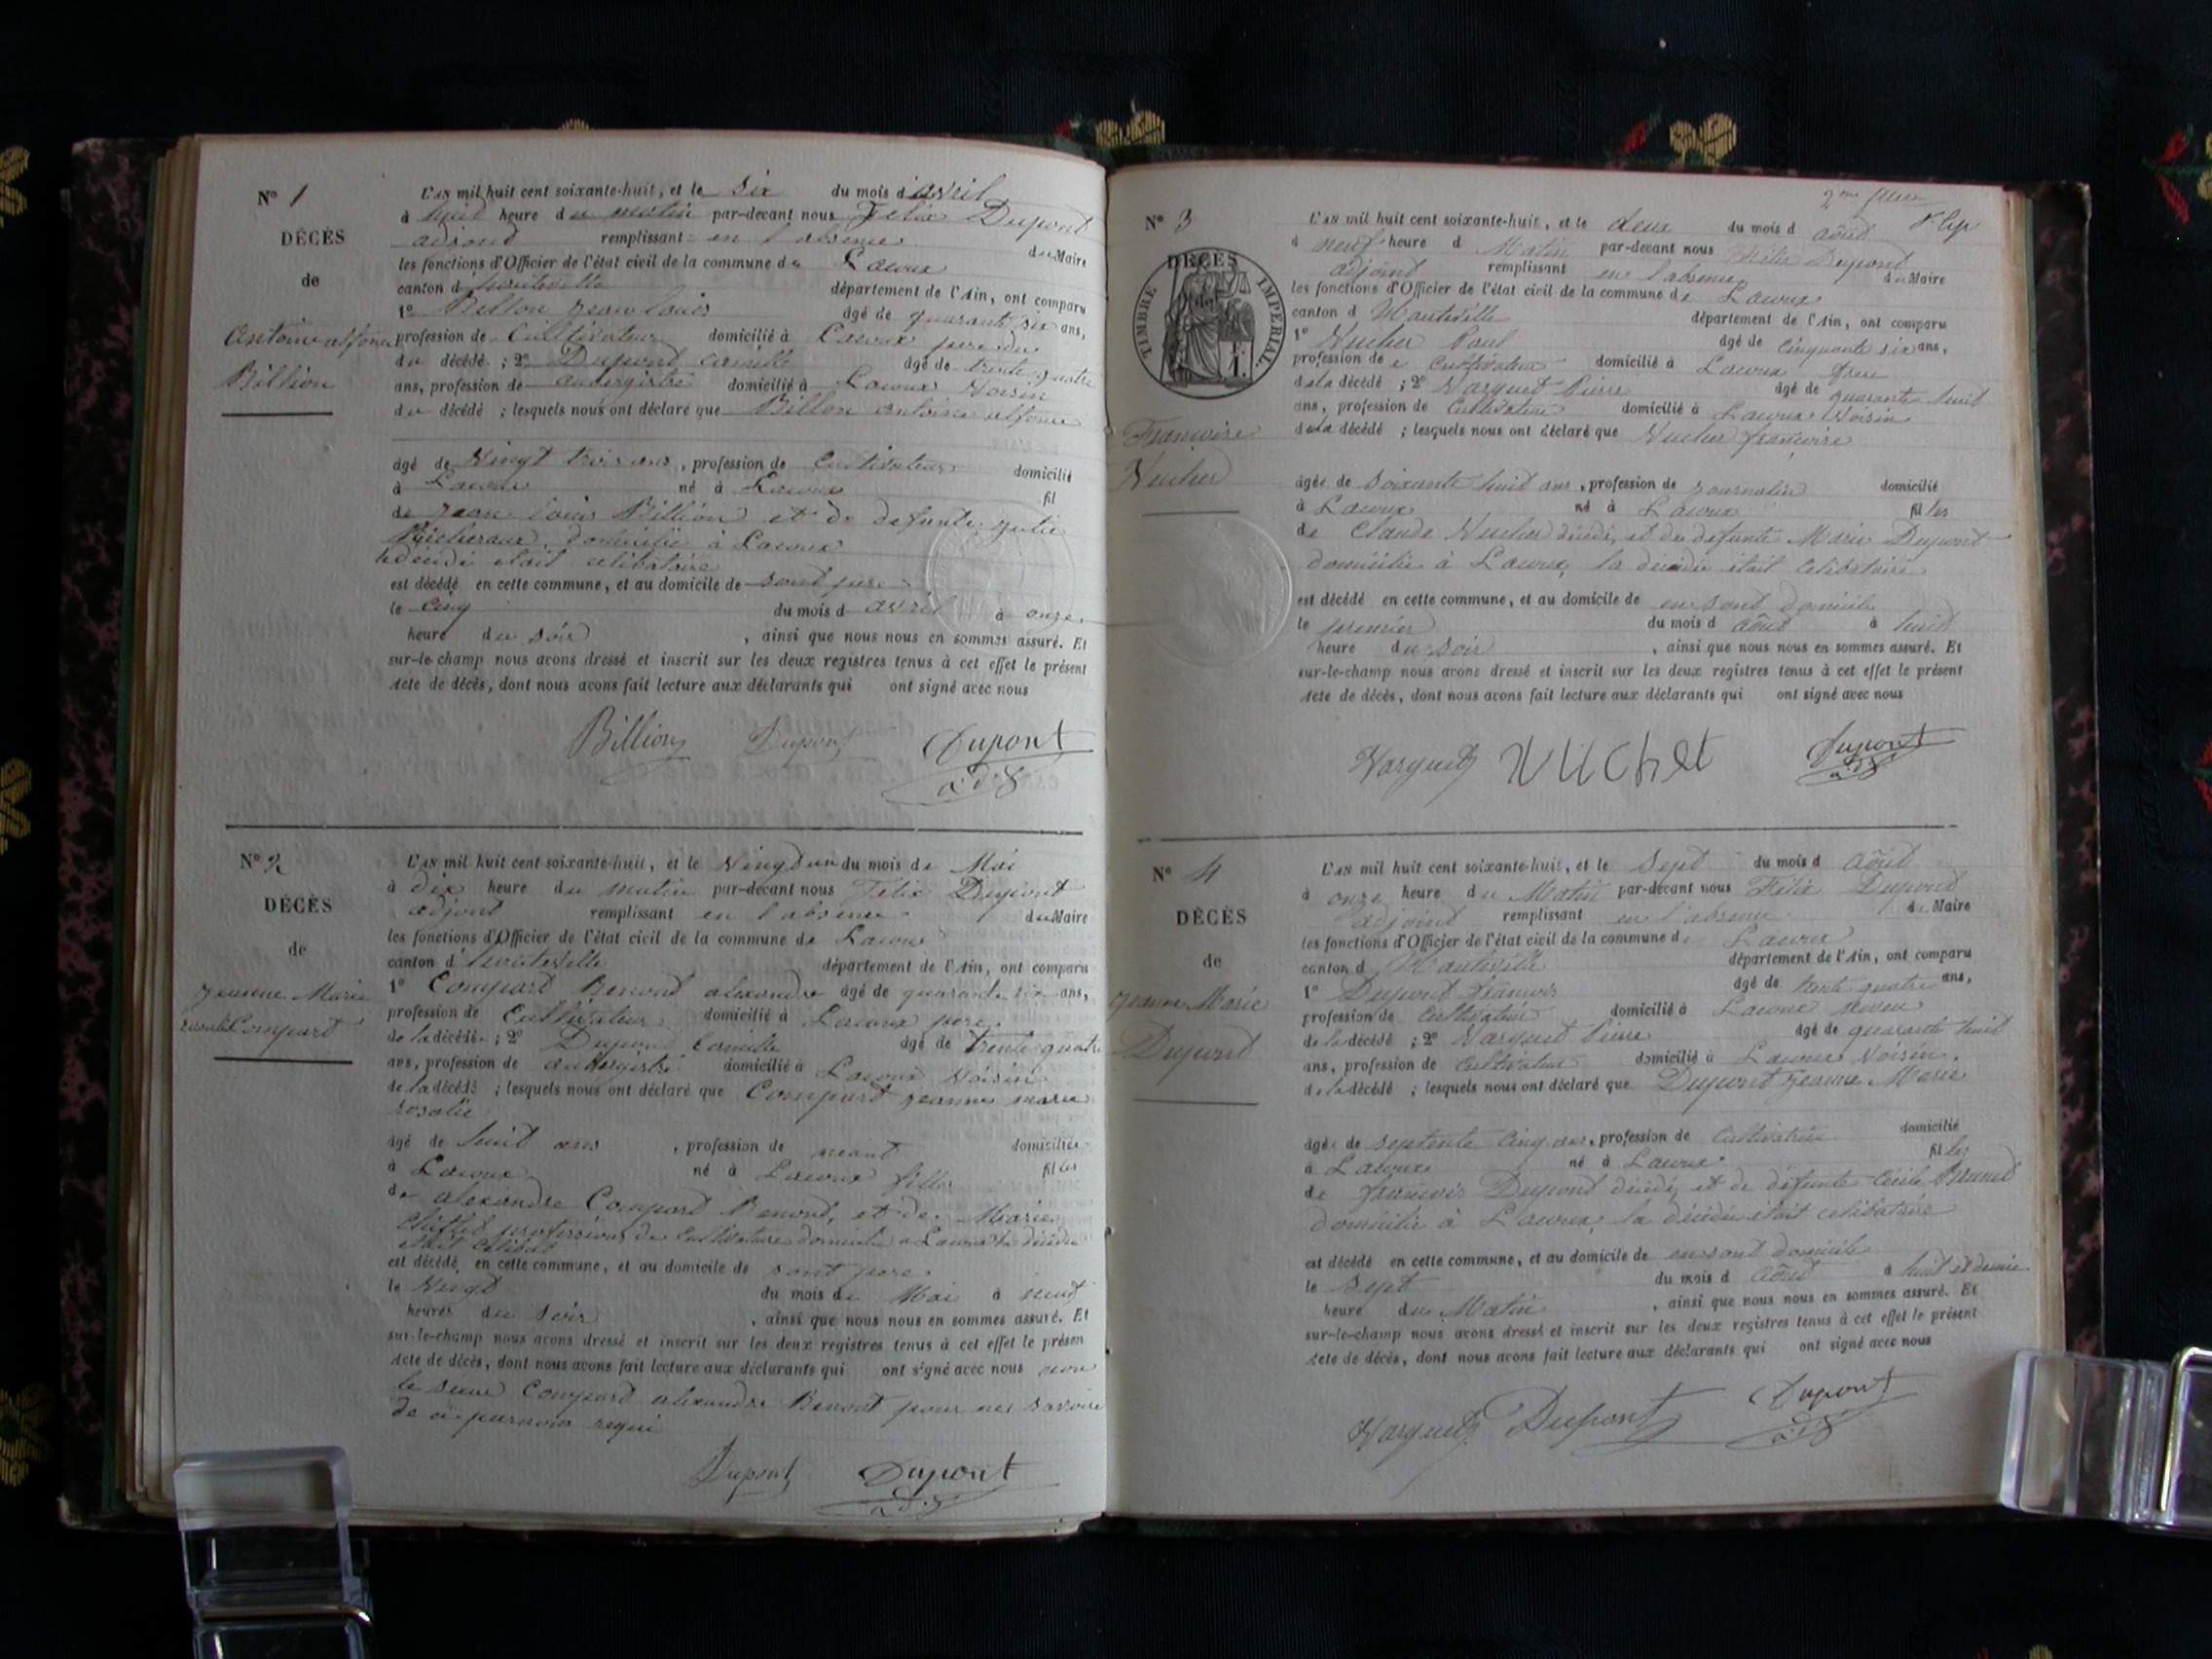 N° 1
DÉCÈS
de
Antoine alfonse
Billion
L'AN mil huit cent soixante-huit, et le six du mois d avril
à huit heure du matin par-devant nous Felix Dupont
adjoind remplissant en l absence du Maire
les fonctions d'Officier de l'état civil de la commune de Lacoux
canton d hauteville département de l'Ain, ont comparu
1° Billon jean louis âgé de quarante six ans,
profession de Cultivateur domicilié à Lacoux pere du
du décédé ; 2° Dupont camille âgé de trente quatre
ans, profession de aubergiste domicilié à Lacoux Voisin
du décédé ; lesquels nous ont déclaré que Billon antoine alfonse
âgé de Vingt trois ans, profession de Cultivateur domicilié
à Lacoux né à Lacoux fil
de jean louis Billion et de defunte julie
domicilié à Lacoux
le décédé était celibataire
est décédé en cette commune, et au domicile de sont pere
le cinq du mois d avril à onze
heure du soir, ainsi que nous nous en sommes assuré. Et
sur-le-champ nous avons dressé et inscrit sur les deux registres tenus à cet effet le présent
acte de décès, dont nous avons fait lecture aux déclarants qui ont signé avec nous
Billion Dupont Dupont
adj
N° 2
DÉCÈS
de
jeanne Marie
rosalie Compart
L'AN mil huit cent soixante-huit, et le Vingt un du mois de Mai
à dix heure du matin par-devant nous Felix Dupont
adjoint remplissant en l absence du Maire
les fonctions d'Officier de l'état civil de la commune de Lacoux
canton d hauteville département de l'Ain, ont comparu
1° Compart Benoit alexandre âgé de quarante six ans,
profession de Cultivateur domicilié à Lacoux pere
de la décédé ; 2° Dupont Camille âgé de trente quatre
ans, profession de aubergiste domicilié à Lacoux Voisin
de la décédé ; lesquels nous ont déclaré que Compart jeanne marie
rosalie
âgé de huit ans, profession de neant domiciliée
à Lacoux né à Lacoux fille filles
de alexandre Compart Benoit, et de Marie
profession de Cultivateur domicilié a Lacoux la décédée
était celibat
est décédé en cette commune, et au domicile de sont pere
le Vingt du mois de Mai à neuf
heures du soir, ainsi que nous nous en sommes assuré. Et
sur-le-champ nous avons dressé et inscrit sur les deux registres tenus à cet effet le présen
acte de décès, dont nous avons fait lecture aux déclarants qui ont signé avec nous non
le sieur Compart alexandre Benoit pour ne savoir
de ce par nous requi
Dupont Dupont
adj
N° 3
DÉCÈS
TIMBRE IMPÉRIAL
Francoise
Vucher
L'AN mil huit cent soixante-huit, et le deux du mois d août
à neuf heure d Matin par-devant nous Félix Dupont
adjoint remplissant en l'absence du Maire
les fonctions d'Officier de l'état civil de la commune de Lacoux
canton d Hauteville département de l'Ain, ont comparu
1° Vucher Paul âgé de cinquante six ans,
profession de Cultivateur domicilié à Lacoux frere
de la décédé ; 2° Varguet Pierre âgé de quarante huit
ans, profession de Cultivateur domicilié à Lacoux Voisin
de la décédé ; lesquels nous ont déclaré que Vucher françoise
âgée de soixante huit ans, profession de journaliere domicilié
à Lacoux né à Lacoux filles
de Claude Vucher décédé, et de defunte Marie Dupont
domicilié à Lacoux, la décédée était celibataire
est décédé en cette commune, et au domicile de en sont domicile
le premier du mois d août à huit
heure du soir, ainsi que nous nous en sommes assuré. Et
sur-le-champ nous avons dressé et inscrit sur les deux registres tenus à cet effet le présent
acte de décès, dont nous avons fait lecture aux déclarants qui ont signé avec nous
Varguet VUCher Dupont
adj
N° 4
DÉCÈS
de
jeanne Marie
Dupont
L'AN mil huit cent soixante-huit, et le Sept du mois d août
à onze heure du Matin par-devant nous Félix Dupont
adjoint remplissant en l'absence du Maire
les fonctions d'Officier de l'état civil de la commune d Lacoux
canton d Hauteville département de l'Ain, ont comparu
1° Dupont francois âgé de trente quatre ans,
profession de Cultivateur domicilié à Lacoux neveu
de la décédé ; 2° Varguet Pierre âgé de quarante huit
ans, profession de Cultivateur domicilié à Lacoux Voisin
de la décédé ; lesquels nous ont déclaré que Dupont jeanne Marie
âgée de septente cinq ans, profession de Cultivatrice domicilié
à Lacoux né à Lacoux filles
de françois Dupont décédé, et de défunte Cécile Brunet
domicilié à Lacoux, la décédée était celibataire
est décédé en cette commune, et au domicile de en sont domicile
le Sept du mois d août à huit et demie
heure du Matin, ainsi que nous nous en sommes assuré. Et
sur-le-champ nous avons dressé et inscrit sur les deux registres tenus à cet effet le présent
acte de décès, dont nous avons fait lecture aux déclarants qui ont signé avec nous
Varguet Dupont Dupont
adj